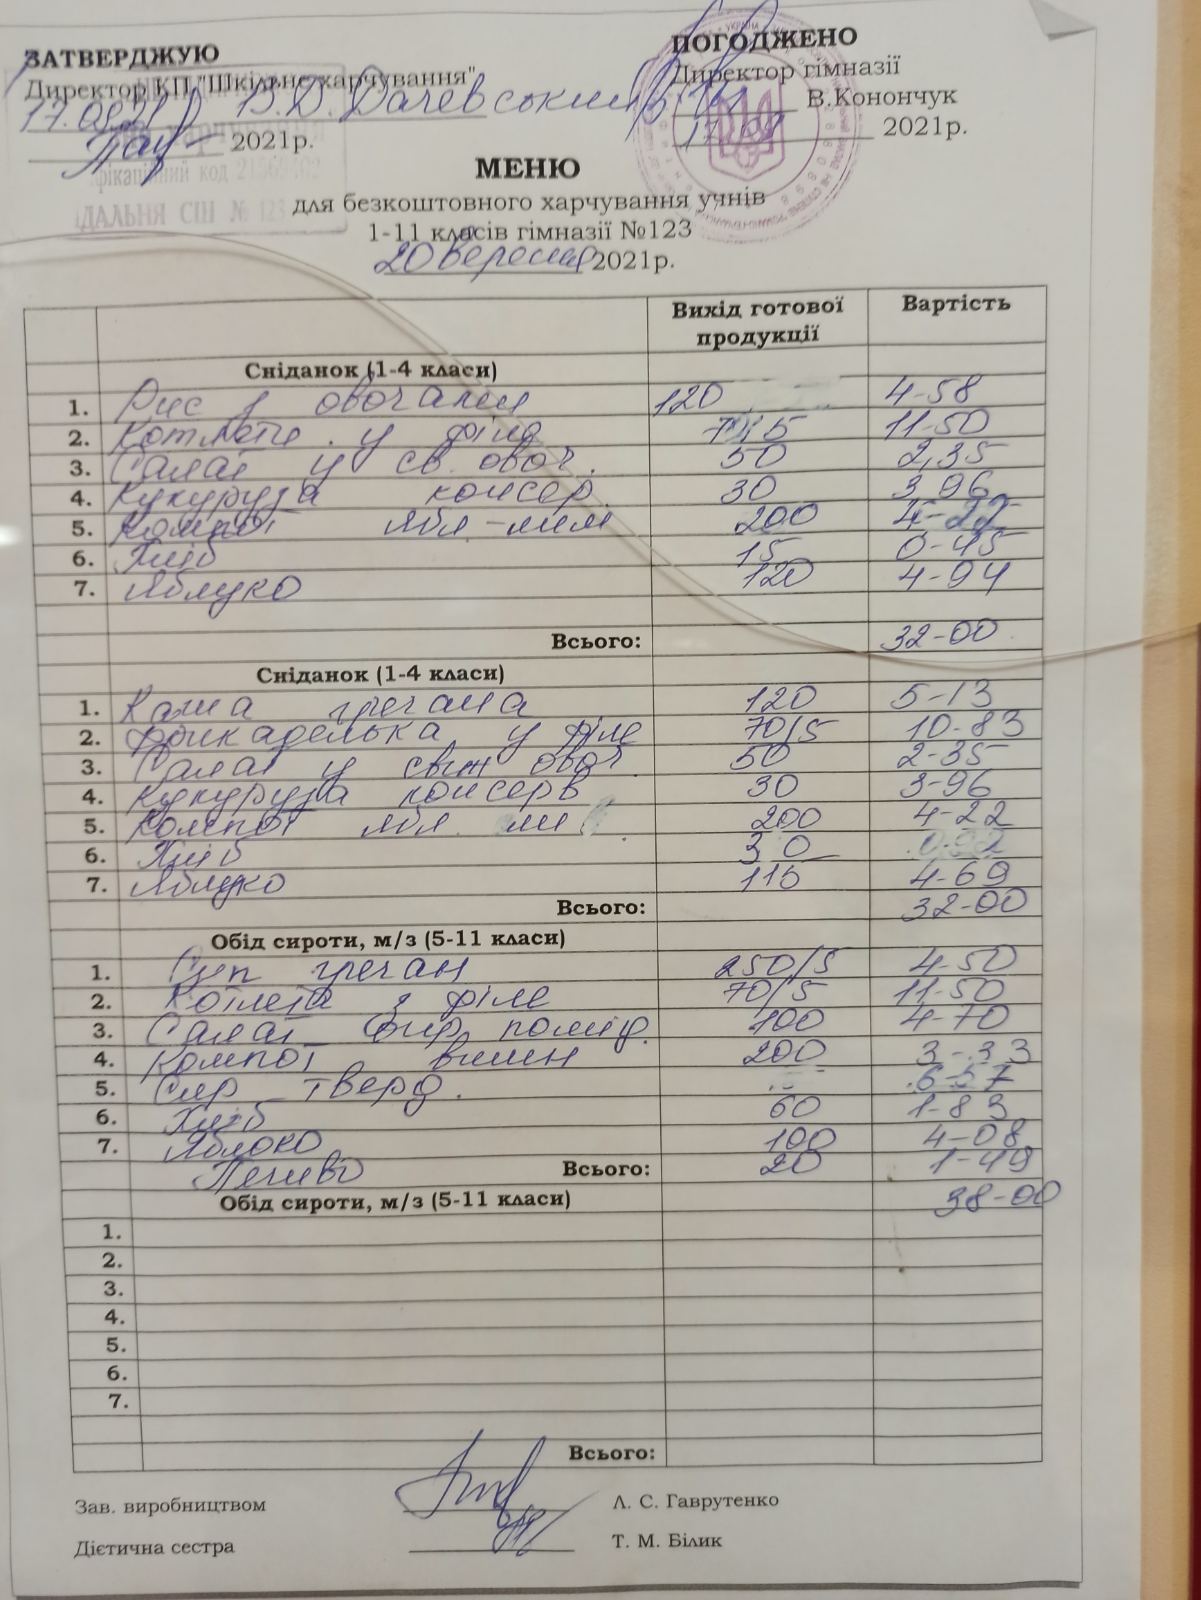 ЗАТВЕРДЖУЮ
Директор КП "Шкільне харчування"
2021р.
ПОГОДЖЕНО
Директор гімназії
В.Конончук
2021р.
МЕНЮ
для безкоштовного харчування учнів
1-11 класів гімназії №123
20 вересня 2021р.
Вихід готової продукції Вартість
Сніданок (1-4 класи)
1. Рис з овочами 120 4-58
2. Котлета у філе 11-50
3. Салат у св. овоч. 50 2,35
4. Кукурудза консер. 30 3 96
5. Компот ябл.-лим 200 4-22
6. Хліб 15 0-45
7. Яблуко 120 4-94
Всього: 32-00
Сніданок (1-4 класи)
1. Каша гречана 120 5-13
2. Фрикаделька у філе 70/5 10-83
3. Салат у свіж овоч 50 2-35
4. Кукурудза консерв 30 3-96
5. Компот ябл. 200 4-22
6. Хліб 30
7. Яблуко 115 4-69
Всього: 32-00
Обід сироти, м/з (5-11 класи)
1. Суп гречан 250/5 4-50
2. Котлета з філе 70/5 11-50
3. Салат помід. 100 4-70
4. Компот вишн 200 3-33
5. Сир тверд. 6-57
6. Хліб 60 1-83
7. Яблоко 100 4-08
Печиво Всього: 20 1-49
Обід сироти, м/з (5-11 класи) 38-00
1.
2.
3.
4.
5.
6.
7.
Всього:
Зав. виробництвом Л. С. Гаврутенко
Дієтична сестра Т. М. Білик